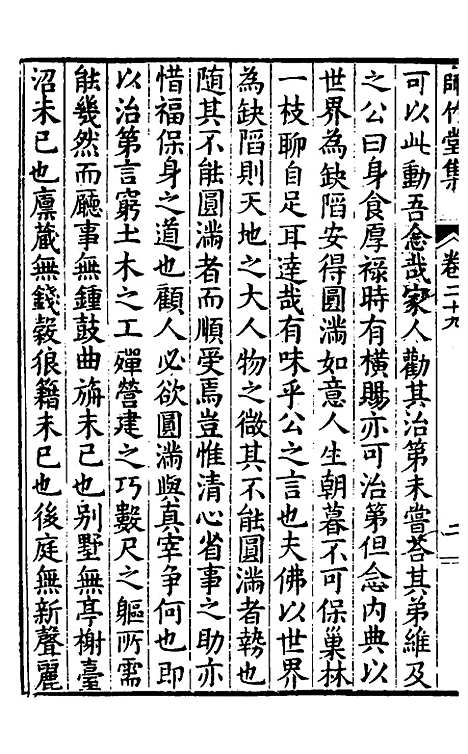 師竹堂集 卷二十九 二
可以此動吾念哉家人勸其治第未嘗荅其弟維及
之公曰身食厚祿時有橫賜亦可治第但念內典以
世界為缺陷安得圓滿如意人生朝暮不可保巢林
一枝聊自足耳達哉有味乎公之言也夫佛以世界
為缺陷則天地之大人物之微其不能圓滿者勢也
隨其不能圓滿者而順受焉豈惟清心省事之助亦
惜福保身之道也顧人必欲圓滿與真宰爭何也即
以治第言窮土木之工殫營建之巧數尺之軀所需
能幾然而廳事無鍾鼓曲旃未已也別墅無亭榭臺
沼未已也廩藏無錢穀狼籍未已也後庭無新聲麗